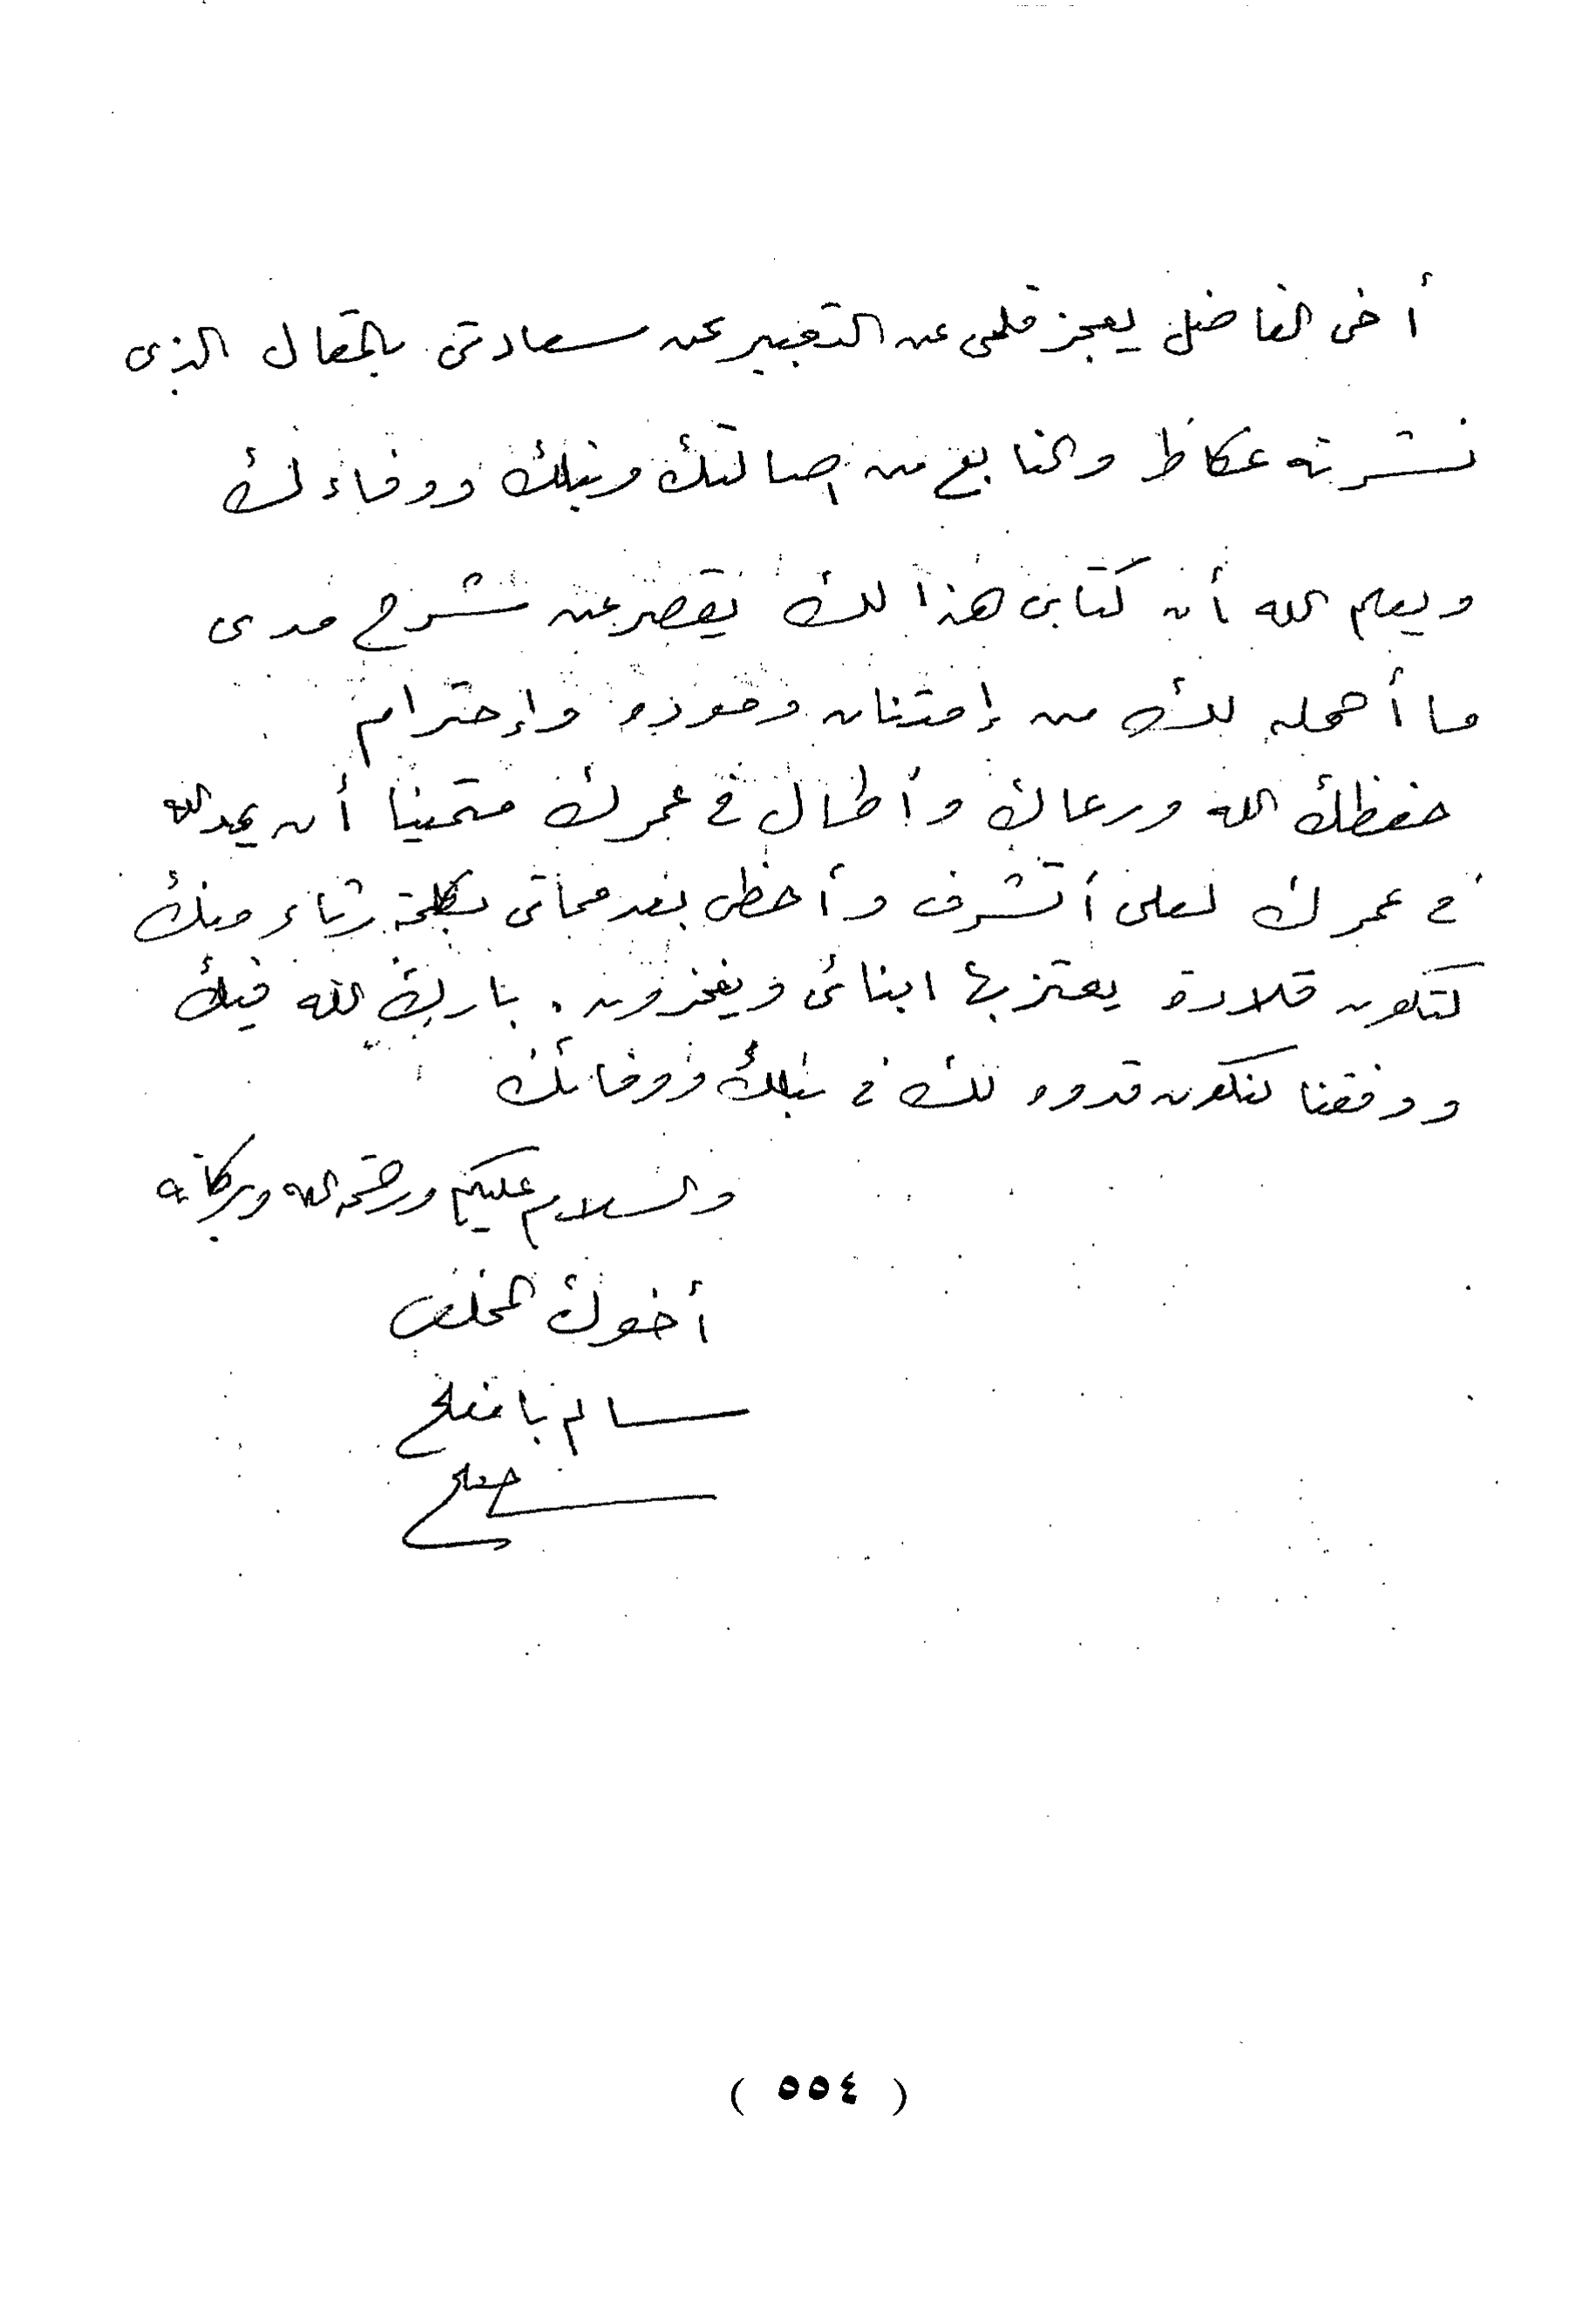 أخى الفاضل يعجز قلمى عن التعبير عن سعادتى بالمقال الذى
نشرته عكاظ والنابع من اصالتك ونبلك ووفاءك
ويعلم الله أن كتابى هذا لك يقصر عن شرح مدى
ما أحمله لك من إمتنان ومودة وإحترام
حفظك الله ورعاك وأطال فى عمرك متمنيا أن يمد الله
فى عمرك لعلى أتشرف وأحظى بعد مماتى بكلمة رثاء منك
لتكون قلادة يعتز بها ابنائى ويفخرون . بارك الله فيك
ووفقنا لنكون قدوه لك فى نبلك ووفائك
والسلام عليكم ورحمة الله وبركاته
أخوك المخلص
سالم بامفلح
( ٥٥٤ )